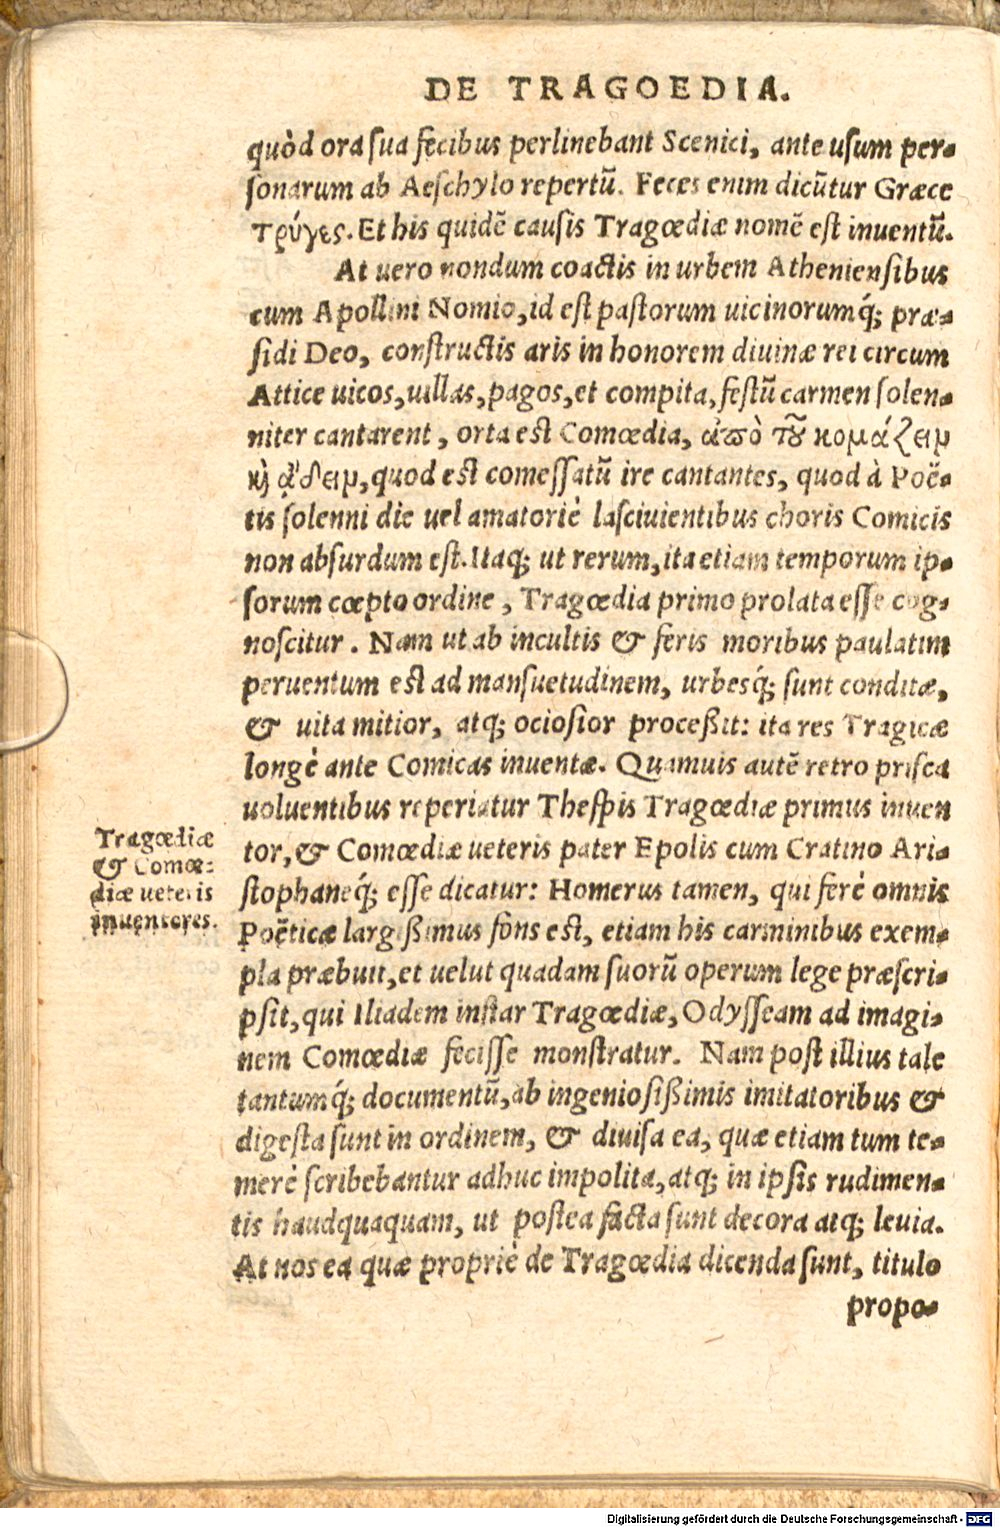 DE TRAGOEDIA.
quòd ora sua fecibus perlinebant Scenici, ante usum per-
sonarum ab Aeschylo repertũ. Feces enim dicũtur Græce
τρύγες. Et his quidẽ causis Tragœdiæ nomẽ est inuentũ.
At uero nondum coactis in urbem Atheniensibus
cum Apollini Nomio, id est pastorum uicinorumq́; præ-
sidi Deo, constructis aris in honorem diuinæ rei circum
Attice uicos, uillas, pagos, et compita, festũ carmen solen-
niter cantarent, orta est Comœdia, ἀπὸ τοῦ κομάζειν
καὶ ᾄδειν, quod est comessatũ ire cantantes, quod à Poë-
tis solenni die uel amatoriè lasciuientibus choris Comicis
non absurdum est. Itaq; ut rerum, ita etiam temporum ip-
sorum cœpto ordine, Tragœdia primo prolata esse cog-
noscitur. Nam ut ab incultis & feris moribus paulatim
peruentum est ad mansuetudinem, urbesq́; sunt conditæ,
& uita mitior, atq; ociosior proceßit: ita res Tragicæ
longè ante Comicas inuentæ. Quamuis autẽ retro prisca
uoluentibus reperiatur Thespis Tragœdiæ primus inuen
tor, & Comœdiæ ueteris pater Epolis cum Cratino Ari-
stophaneq́; esse dicatur: Homerus tamen, qui ferè omnis
Poëticæ largißimus fons est, etiam his carminibus exem-
pla præbuit, et uelut quadam suorũ operum lege præscri-
psit, qui Iliadem instar Tragœdiæ, Odysseam ad imagi-
nem Comœdiæ fecisse monstratur. Nam post illius tale
tantumq́; documentũ, ab ingeniosißimis imitatoribus &
digesta sunt in ordinem, & diuisa ea, quæ etiam tum te-
merè scribebantur adhuc impolita, atq; in ipsis rudimen-
tis haudquaquam, ut postea facta sunt decora atq; leuia.
At nos ea quæ propriè de Tragœdia dicenda sunt, titulo
propo-
Tragœdiæ
& Comœ-
diæ ueteris
inuentores.
Digitalisierung gefördert durch die Deutsche Forschungsgemeinschaft - DFG